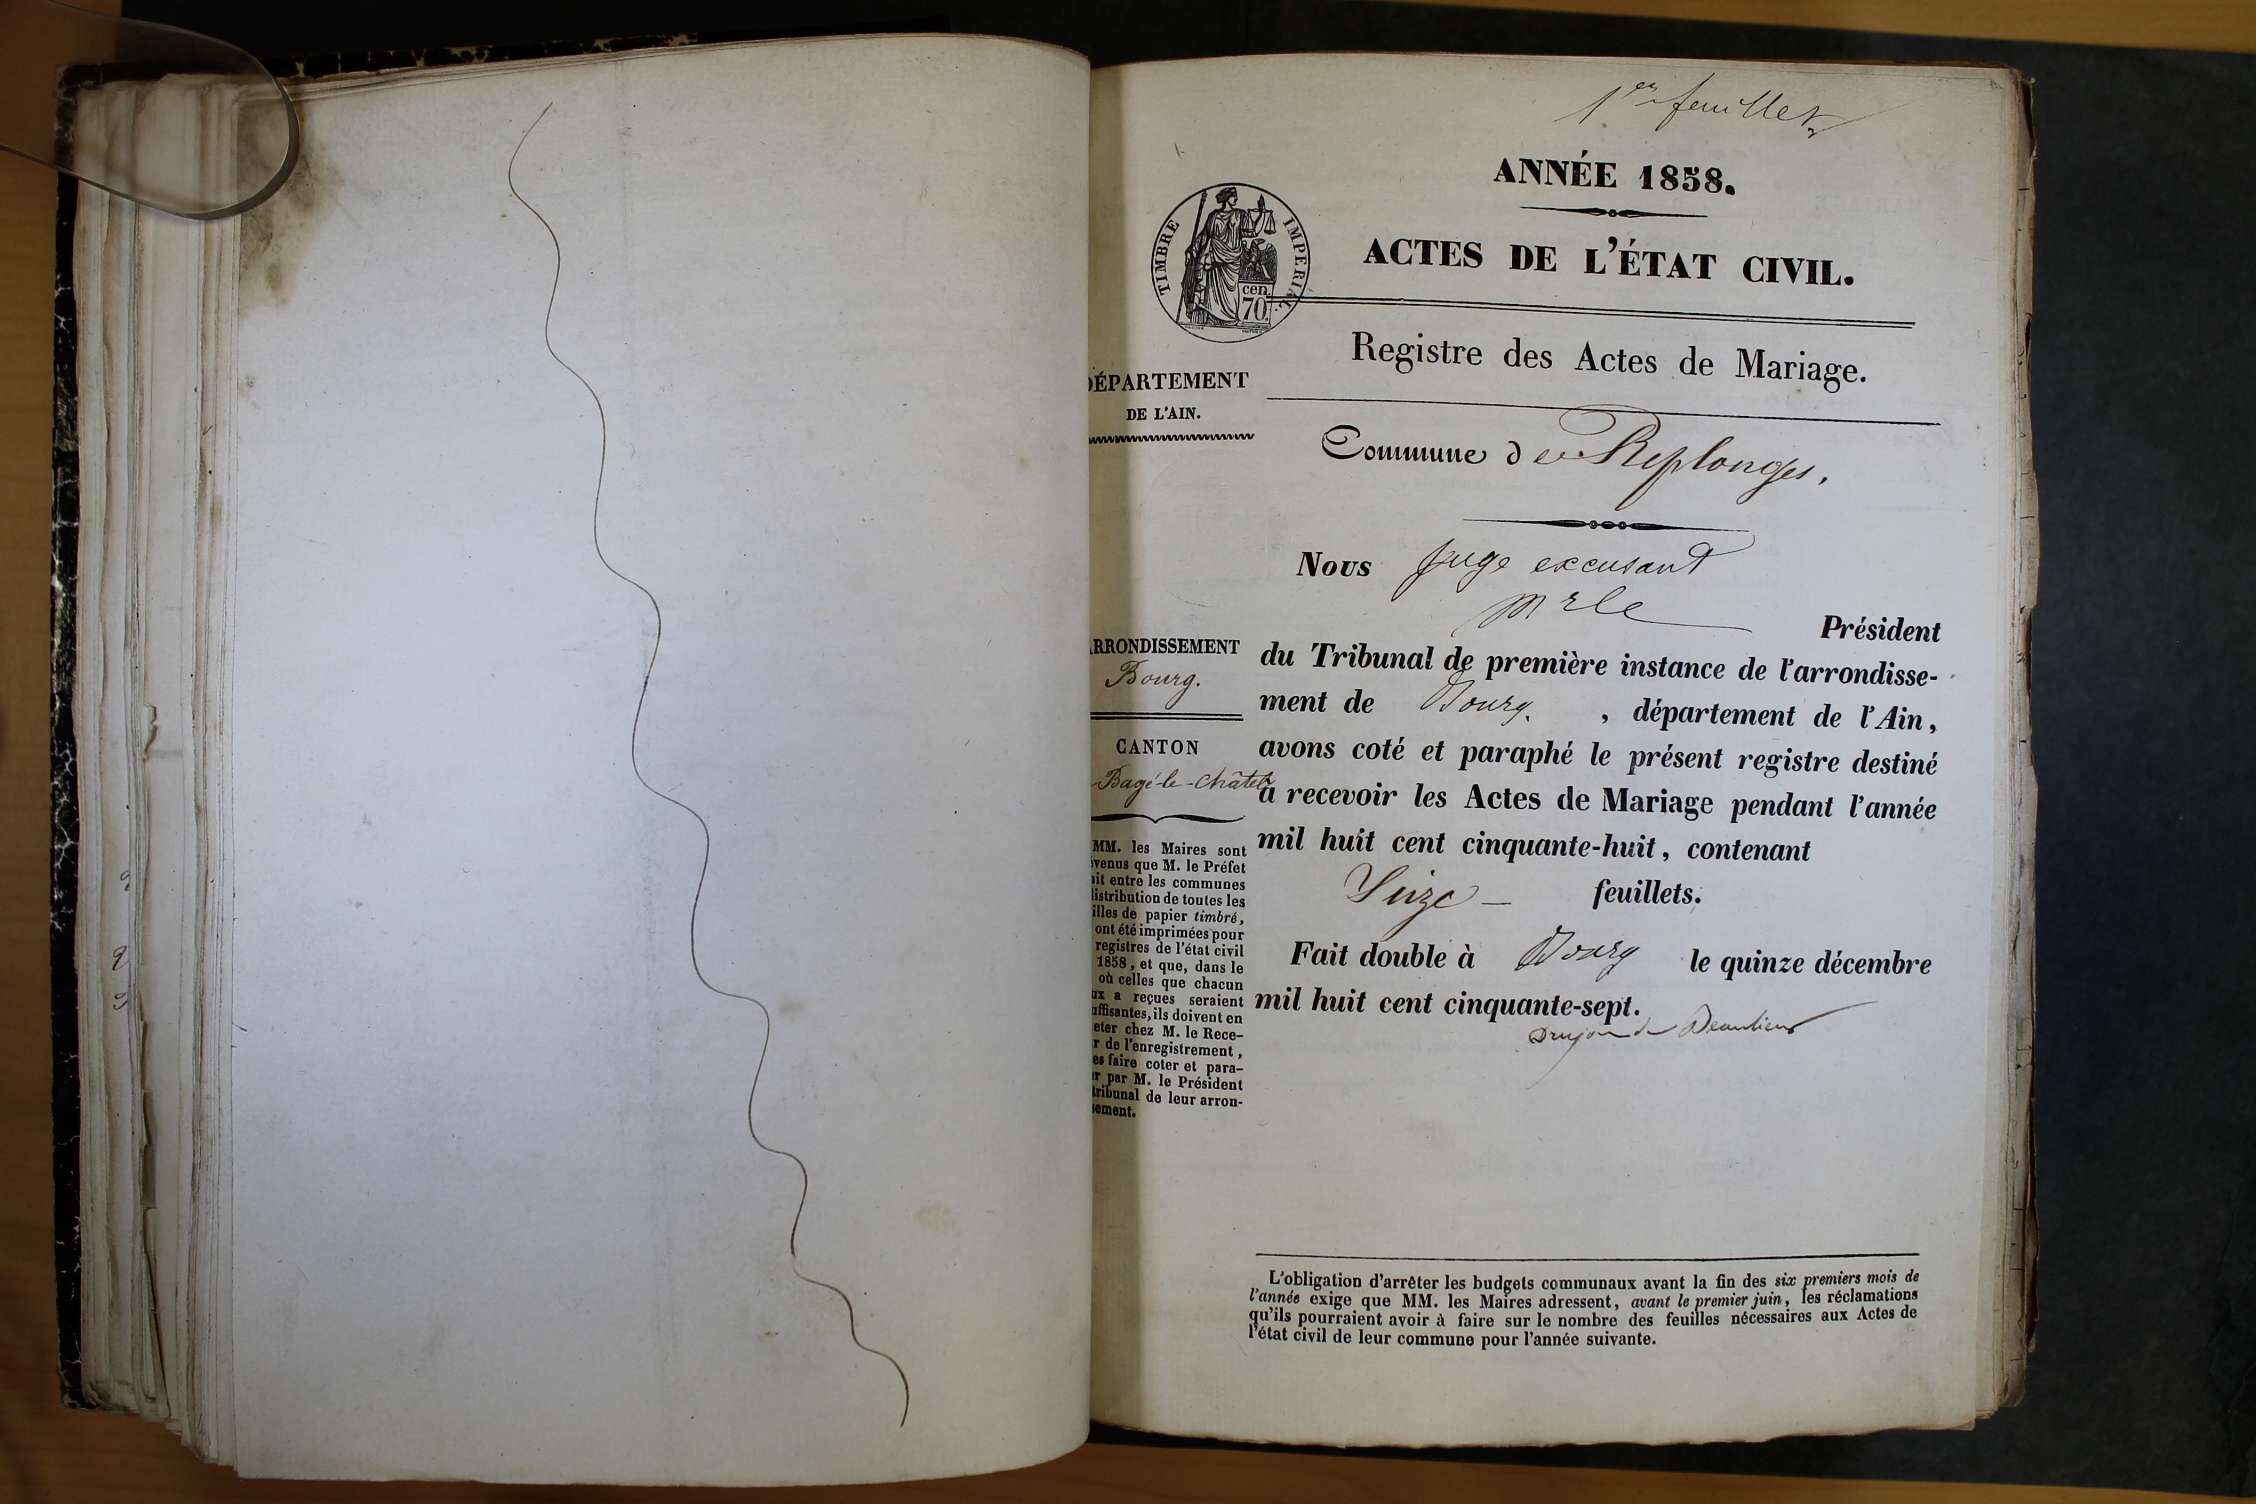 1er feuillet
ANNÉE 1858.
TIMBRE IMPERIAL
cen.
70.
ACTES DE L'ÉTAT CIVIL.
Registre des Actes de Mariage.
DÉPARTEMENT
DE L'AIN.
Commune de Replonges.
Nous juge excusant
Mr le
Président
du Tribunal de première instance de l'arrondisse-
ment de Bourg. , département de l'Ain,
avons coté et paraphé le présent registre destiné
à recevoir les Actes de Mariage pendant l'année
mil huit cent cinquante-huit, contenant
Seize — feuillets.
Fait double à Bourg le quinze décembre
mil huit cent cinquante-sept.
Drujon de Beaulieu
ARRONDISSEMENT
Bourg.
CANTON
Bagé-le-Châtel
MM. les Maires sont
venus que M. le Préfet
ait entre les communes
distribution de toutes les
illes de papier timbré,
ont été imprimées pour
registres de l'état civil
1858, et que, dans le
où celles que chacun
ux a reçues seraient
uffisantes, ils doivent en
eter chez M. le Rece-
r de l'enregistrement,
es faire coter et para-
er par M. le Président
tribunal de leur arron-
sement.
L'obligation d'arrêter les budgets communaux avant la fin des six premiers mois de
l'année exige que MM. les Maires adressent, avant le premier juin, les réclamations
qu'ils pourraient avoir à faire sur le nombre des feuilles nécessaires aux Actes de
l'état civil de leur commune pour l'année suivante.